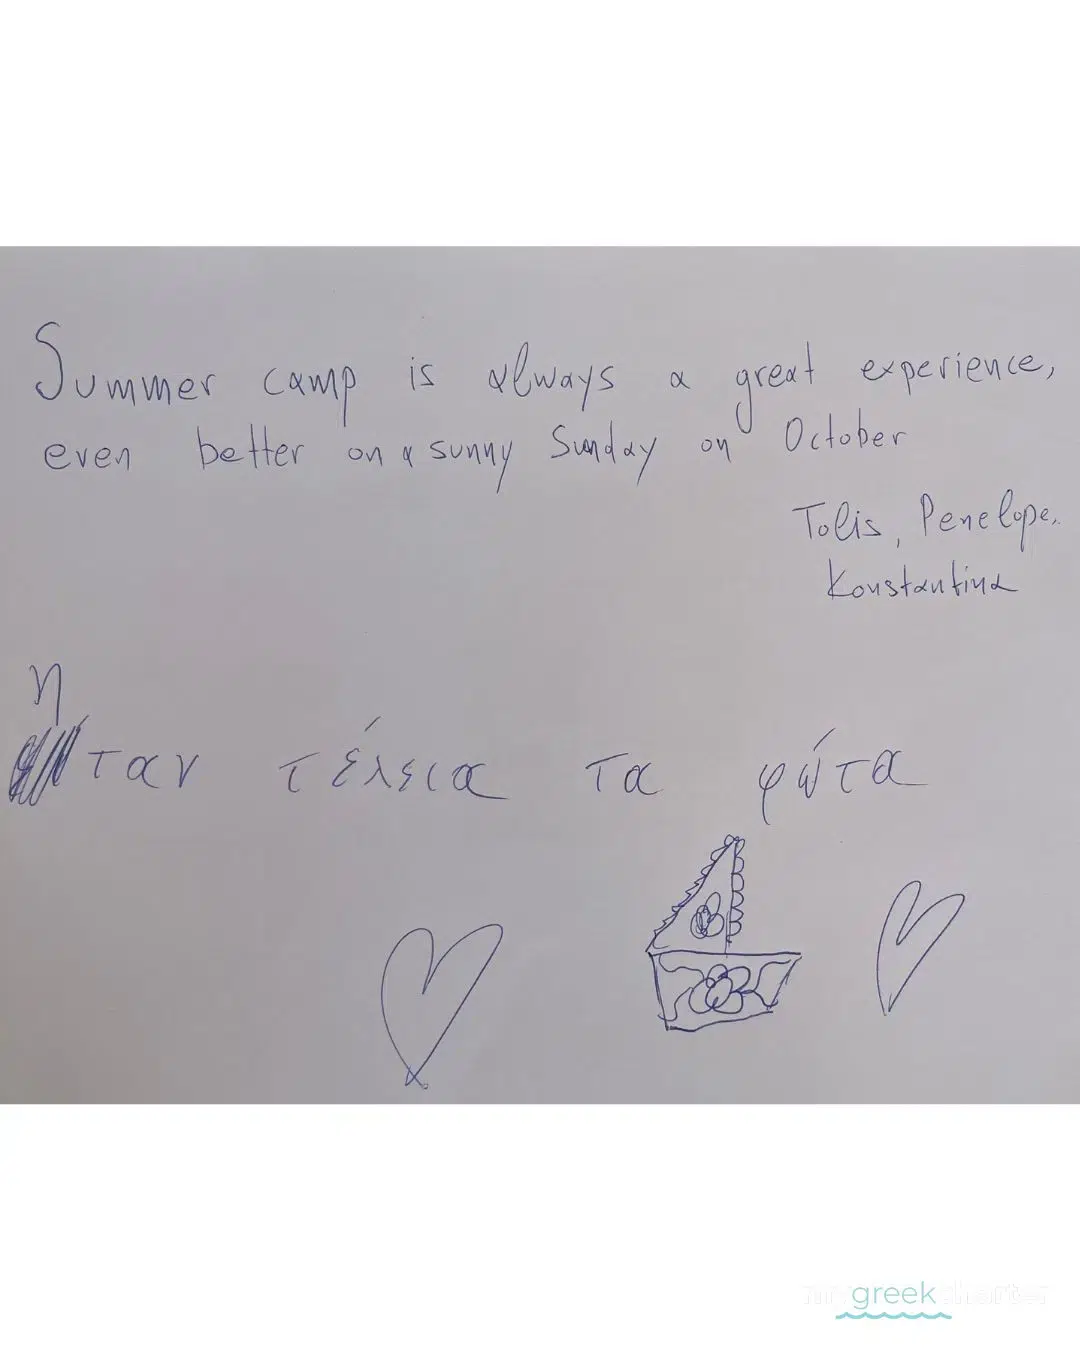 Summer camp is always a great experience,
even better on a sunny Sunday on October
Tolis, Penelope,
Konstantina
ήταν τέλεια τα φώτα
mygreekcharter